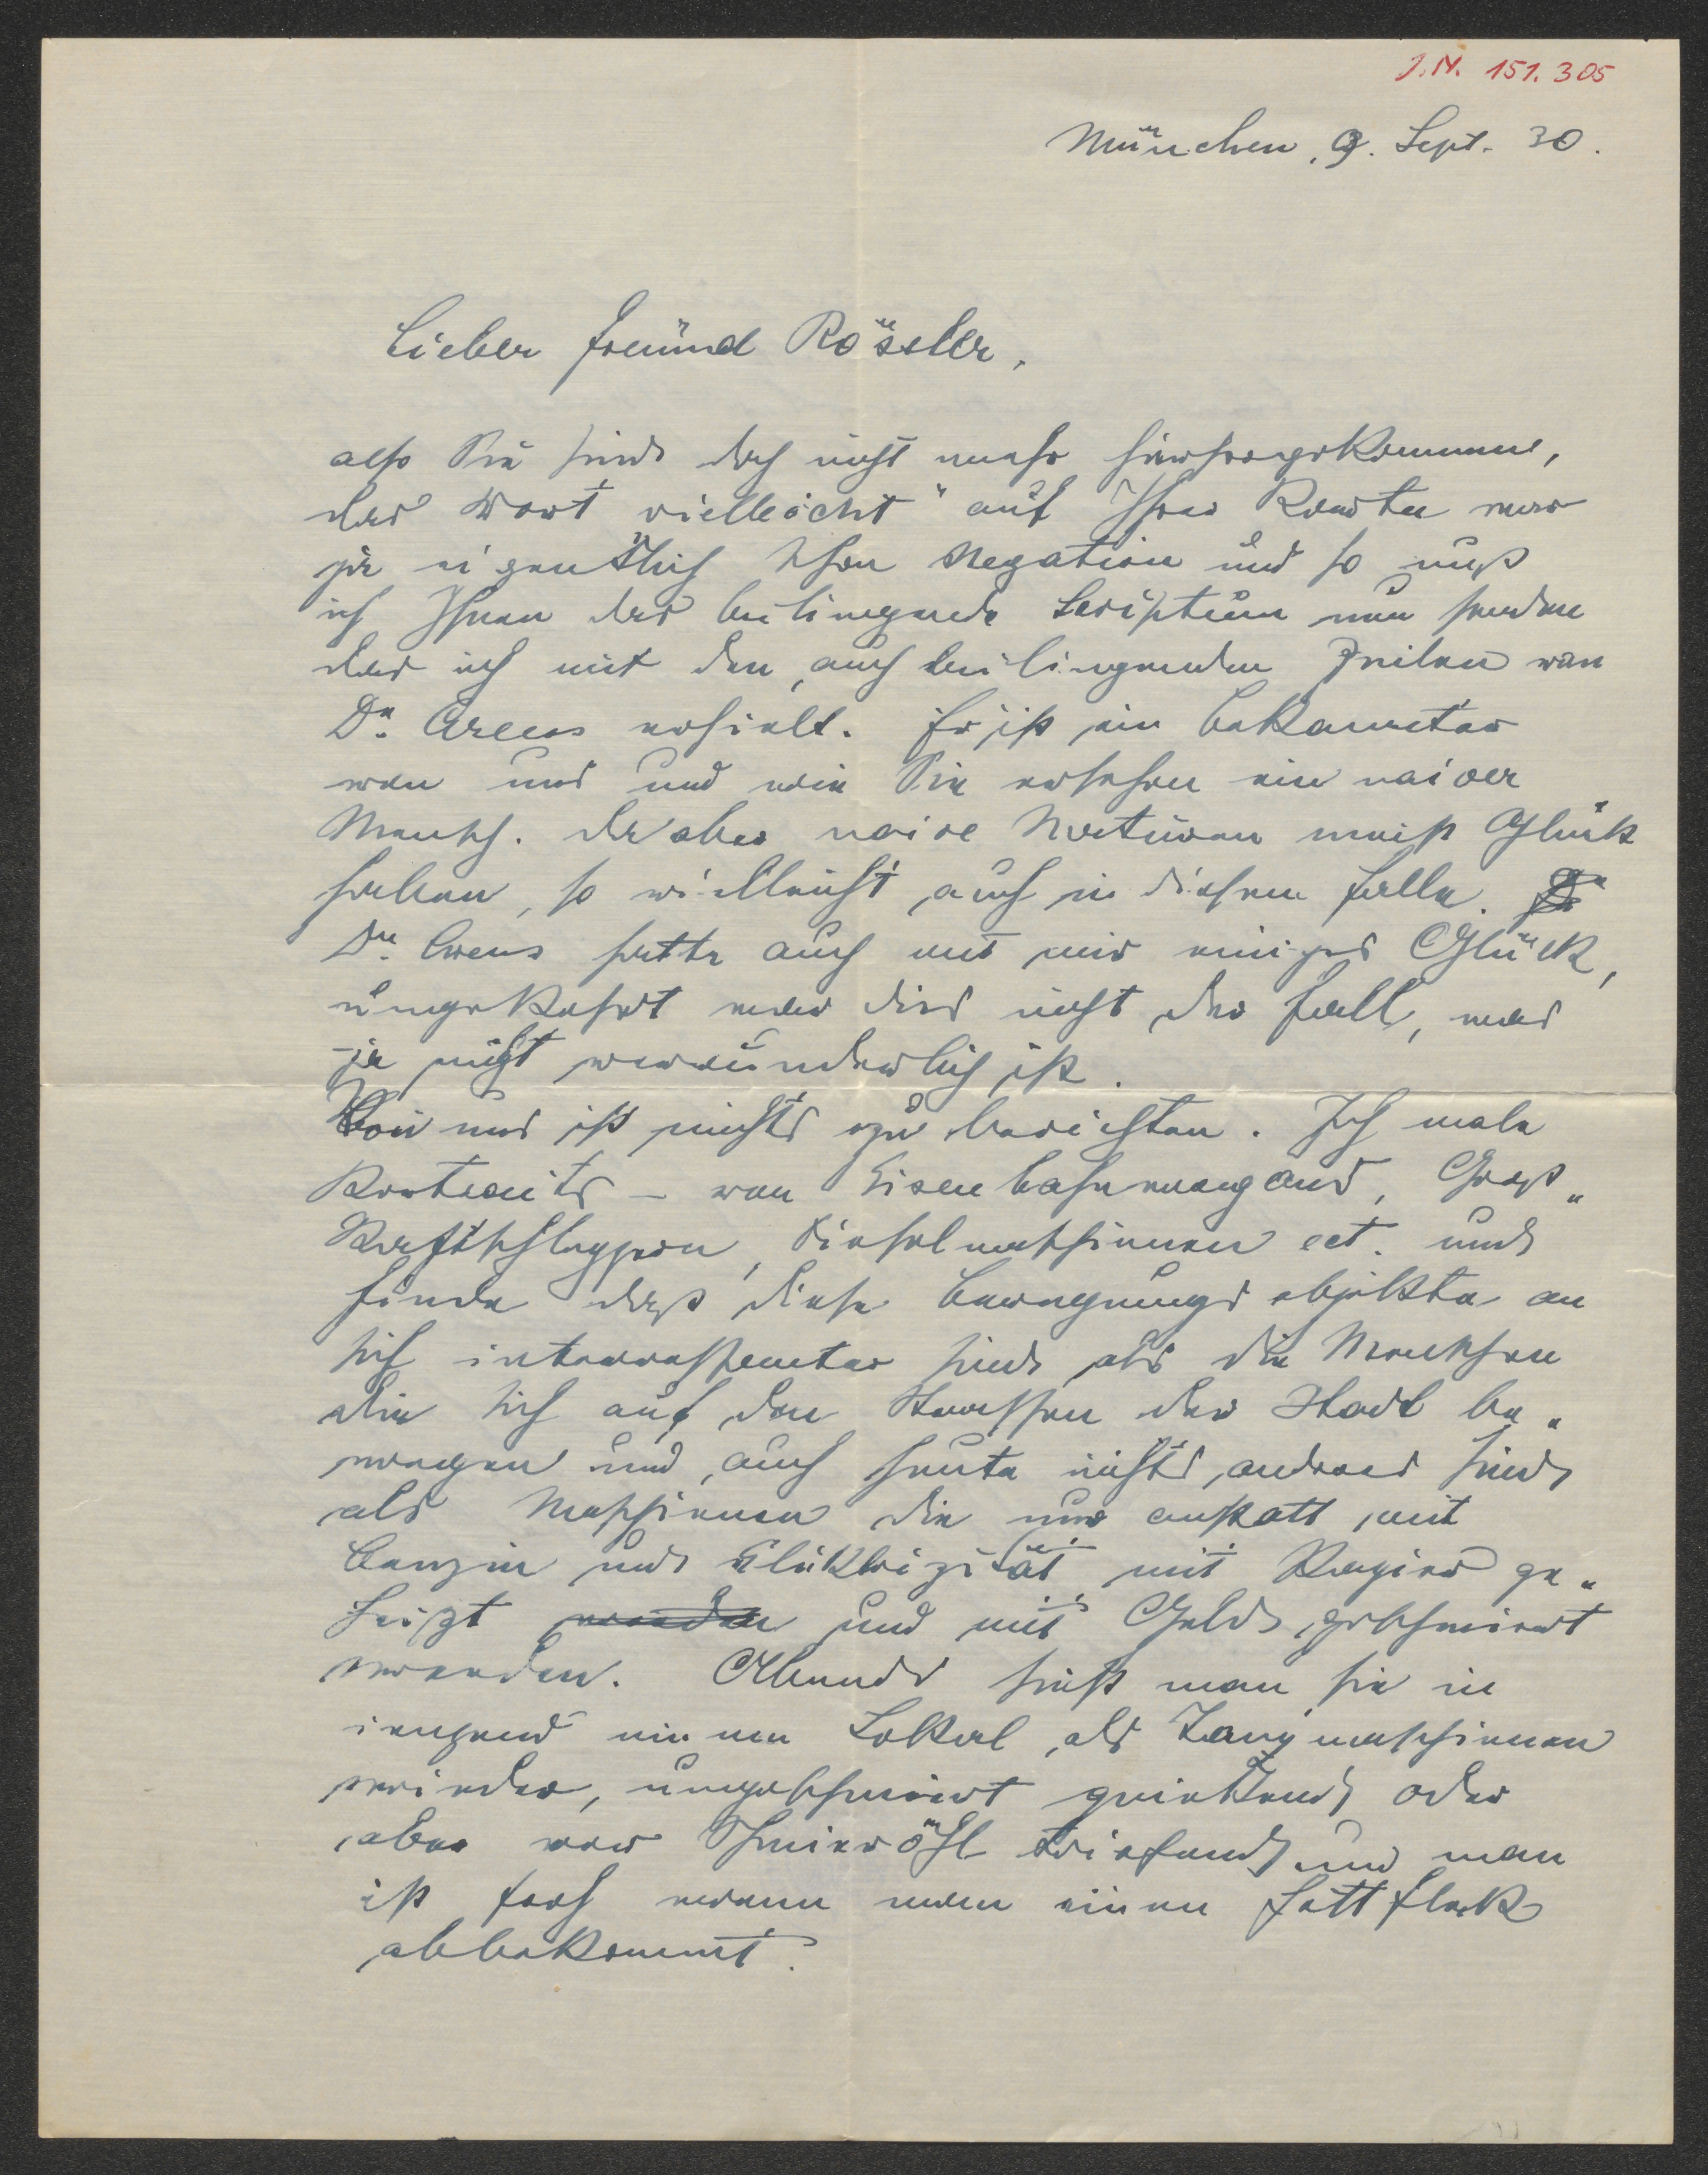 J.N. 151.305
München, 9. Sept. 30.
Lieber Freund Rössler,
also Sie sind doch nicht mehr hierhergekommen,
das Wort vielleicht" auf Ihrer Karte war
ja eigentlich schon Negation und so muß
ich Ihnen das beiliegende Scriptum nun senden
das ich mit den, auch beiliegenden Zeilen von
Dr. Arens erhielt. Er ist ein Bekannter
von uns und wie Sie ersehen ein naiver
Mensch. Da aber naive Naturen meist Glück
haben, so vielleicht auch in diesem Falle.
Dr. Arens hatte auch mit mir einiges Glück,
umgekehrt war dies nicht der Fall, was
ja nicht verwunderlich ist.
Von uns ist nichts zu berichten. Ich male
Portraits – von Eisenbahnwaggons, Grass„
Kaftschleppern, Dieselmaschinen ect. und
finde daß diese Bewegungsobjekte an
sich interressanter sind als die Menschen
die sich auf den Strassen der Stadt be„
wegen und auch heute nichts anderes sind
als Maschinen die nur anstatt mit
Benzin und Elektrizität mit Papier ge„
heizt werden und mit Geld geschmiert
werden. Abends sieht man sie in
irgend einem Lokal als Tanzmaschinen
wieder, ungeschmiert quietschend oder
aber vor Schmieröhl triefend und man
ist froh wenn man einen Fettfleck
abbekommt.